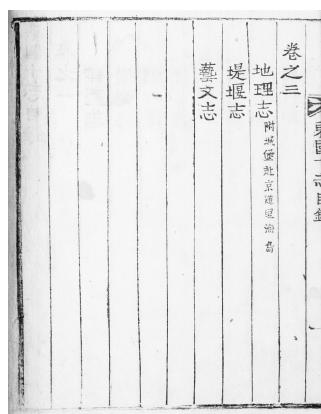 東國十志目錄
卷之三
地理志 附城堡赴京道里海島
堤堰志
藝文志